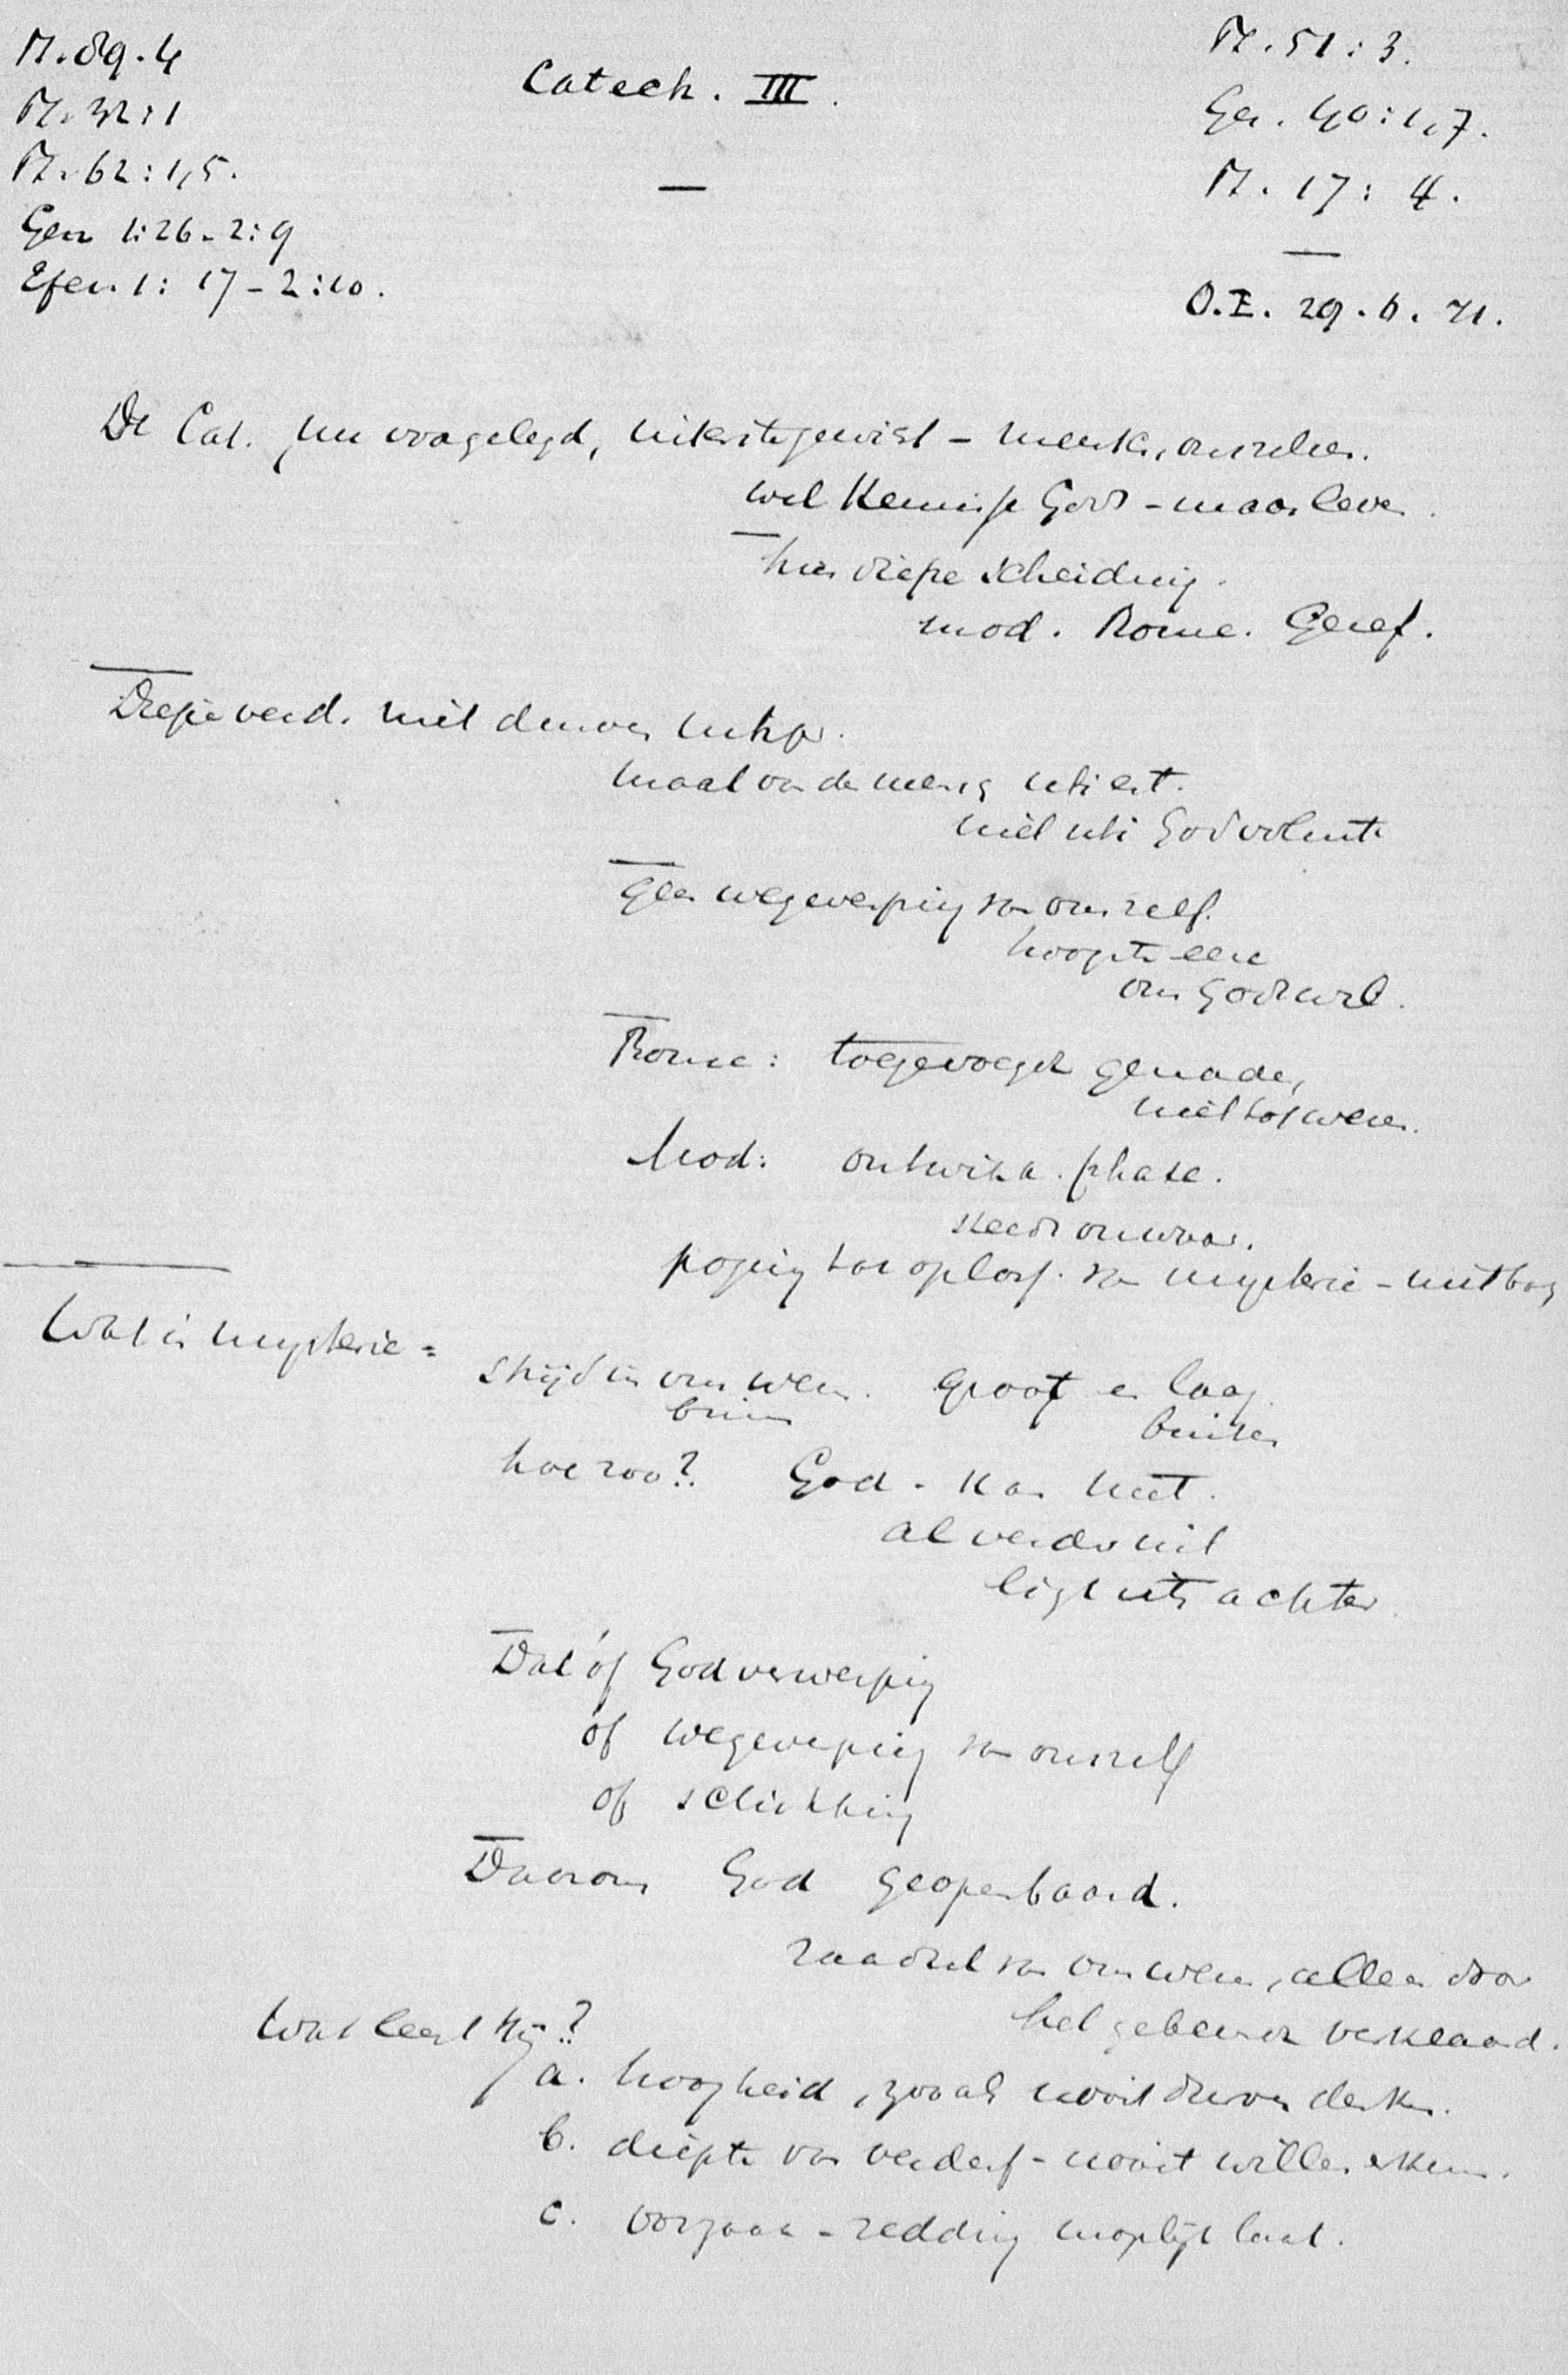 Ps. 89.4
Ps. 32:1
Ps. 62:1,5.
Gen 1:26-2:9
Efez. 1:17-2:10.
Catech. III.
—
Ps. 51:3.
Gez. 40:1,7.
Ps. 17:4.
—
O.E. 29.6.71.
De Cat.
wel kennisse Gods - maar leven.
hier diepe scheiding.
mod. Rome. Geref.
Diepe verd. niet
maat van de mensch
niet God
Geen wegwerping van ons zelf.
hoogste eere
Rome: toegevoegde genade,
niet tot wezen.
Mod: ontwikk. phase.
steeds onwaar.
poging tot oploss. van mysterie -
Wat is mysterie =
Strijd in ons wezen. groot en laag.
binnen buiten
hoe zoo? God - kan niet.
al
ligt iets achter
Dat óf Godverwerping
óf wegwerping van onszelf
of schikking
Daarom God geopenbaard.
raadsel van ons wezen, alleen door
het gebeurde verklaard.
Wat leert Hij?
a. hoogheid, zooals nooit durven denken.
b. diepte van verderf - nooit willen erkennen.
c. oorzaak - redding mogelijk laat.